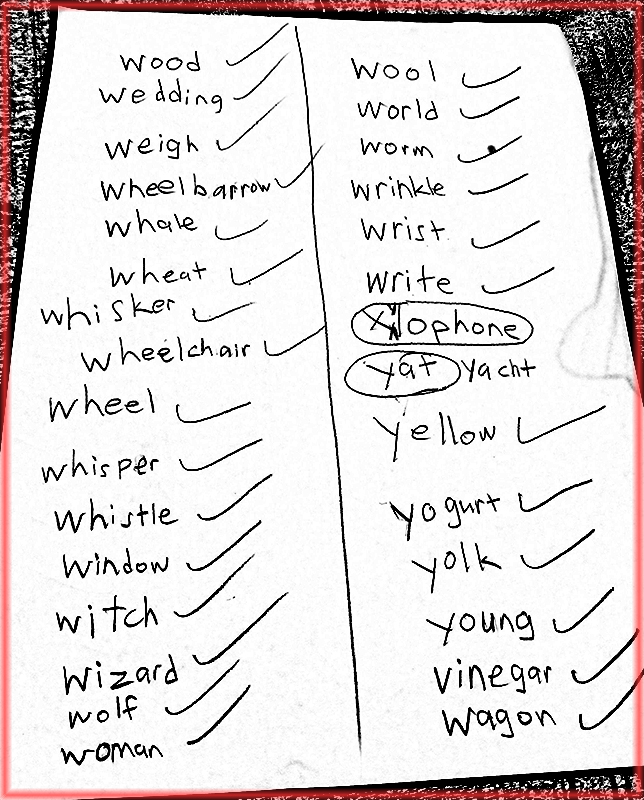 wood
wedding
weigh
wheelbarrow
whale
wheat
whisker
wheelchair
wheel
whisper
whistle
window
witch
wizard
wolf
woman
wool
world
worm
wrinkle
wrist
write
xylophone
yat yacht
yellow
yogurt
yolk
young
vinegar
wagon